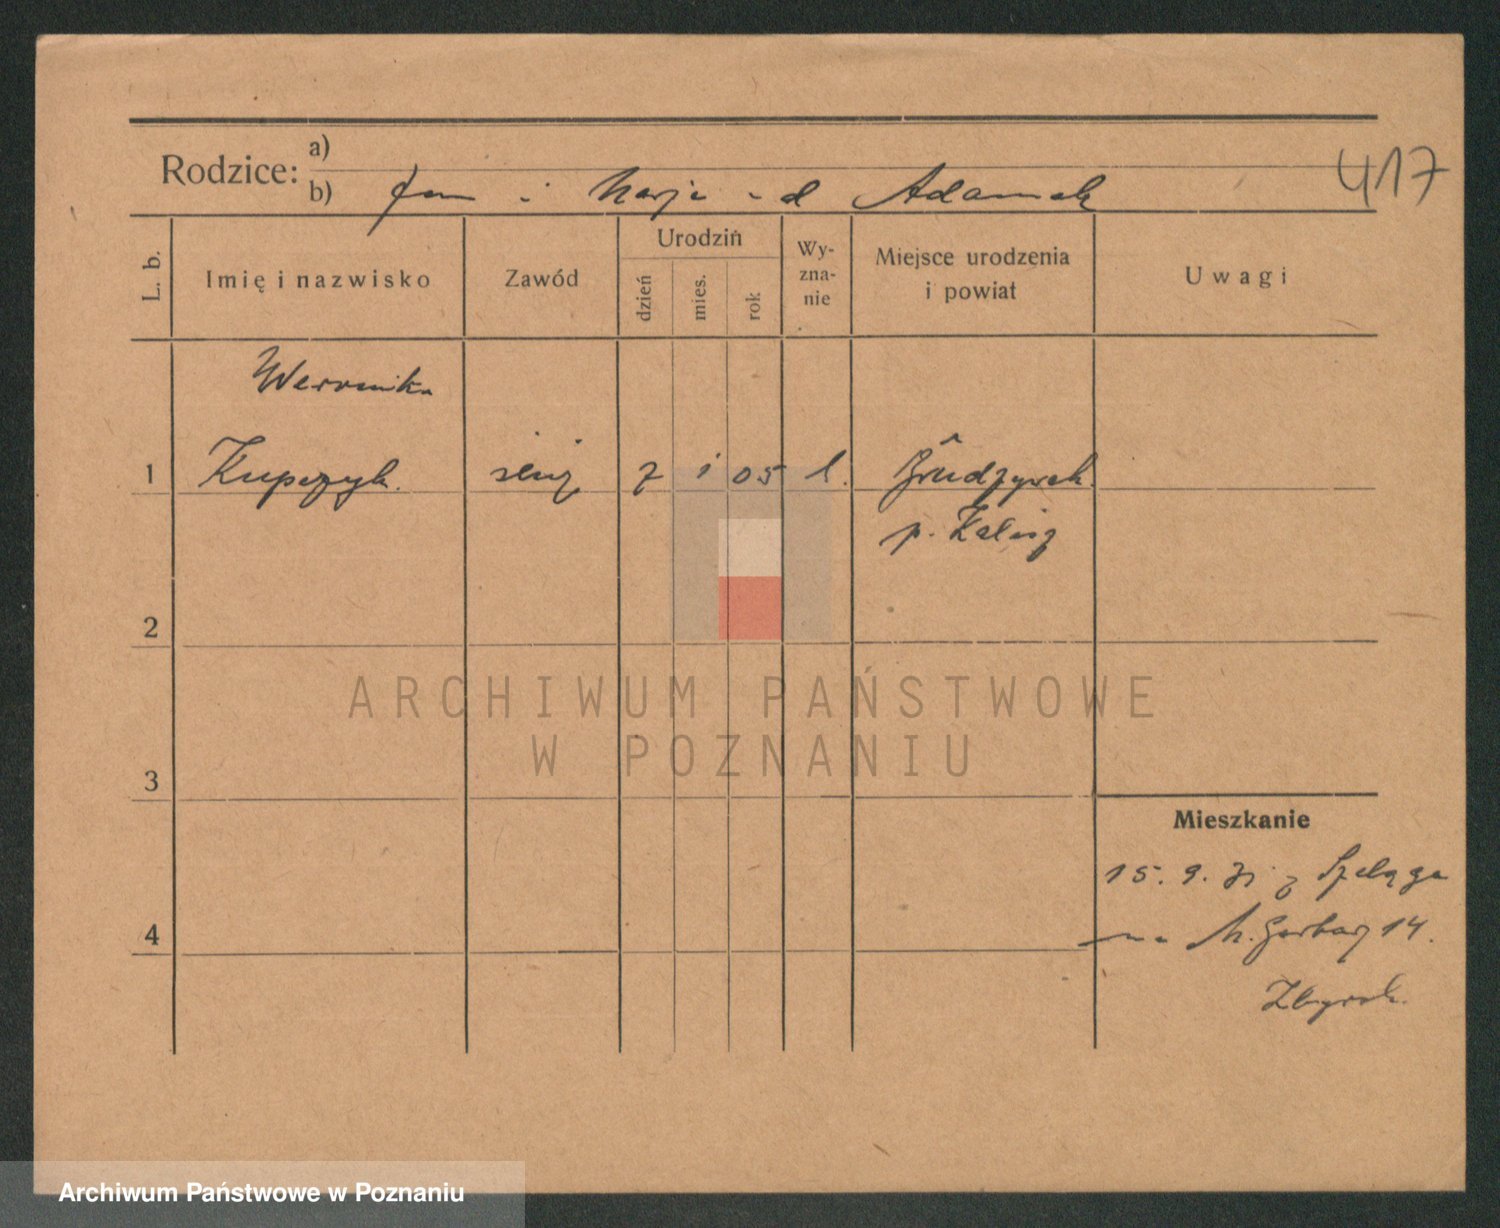 Rodzice: a)
b) Jan i Marja z d Adamek
417
L. b.
Imię i nazwisko
Zawód
Urodzin
dzień
mies.
rok
Wy-
zna-
nie
Miejsce urodzenia
i powiat
Uwagi
Weronika
1 Kupczyk. służ 7 i 05
p. Kalisz
2
3
4
Mieszkanie
15. 9. 31 z Szeląga
na M. Garbary 14.
ARCHIWUM PAŃSTWOWE
W POZNANIU
Archiwum Państwowe w Poznaniu